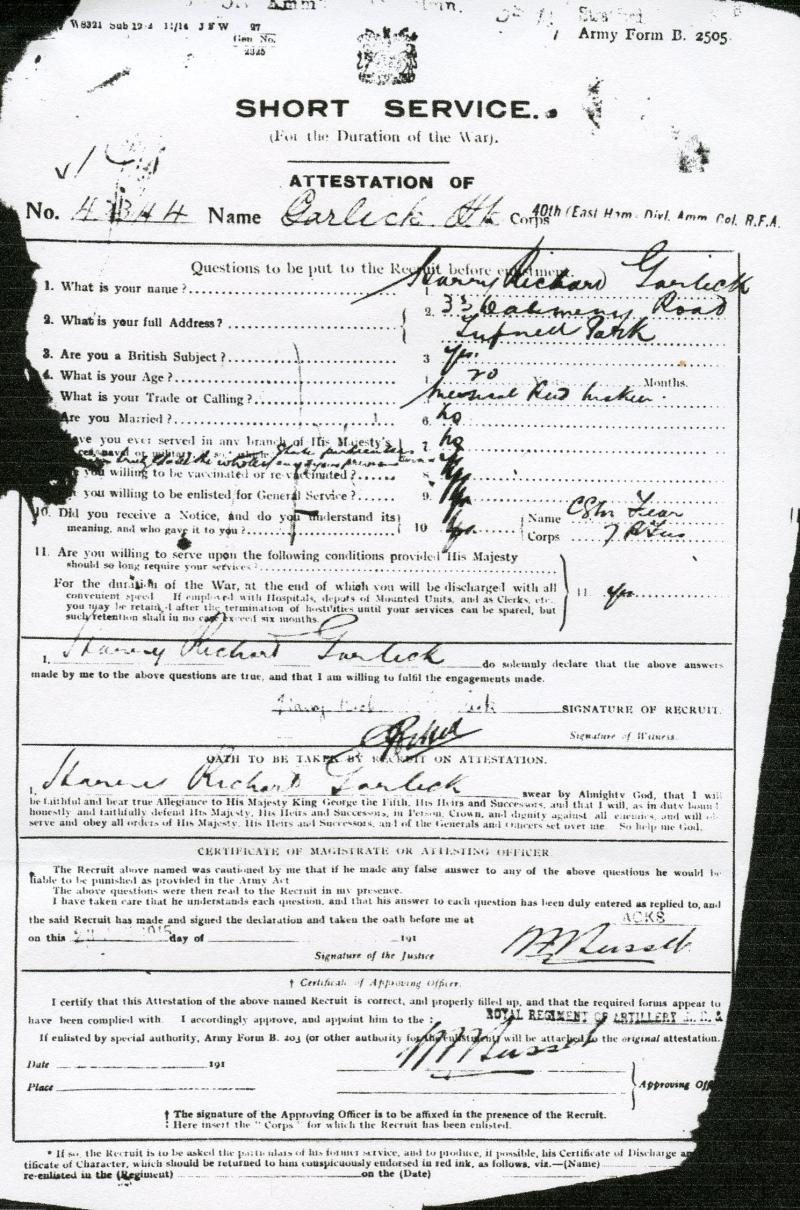 W8321 11/14 J F W 97
Gen No.
2325
Army Form B. 2505
SHORT SERVICE.
(For the Duration of the War).
ATTESTATION OF
No. 4344 Name Garlick Corps 40th (East Ham) Divl. Amm Col. R.F.A.
Questions to be put to the Recruit before enlistment.
1. What is your name? 1. Harry Richard Garlick
2. What is your full Address? 2. 33 Dalmeny Road
Tufnell Park
3. Are you a British Subject? 3 Yes.
4. What is your Age? 20 Months.
5. What is your Trade or Calling? Musical Reed maker.
Are you Married? 6. No
Have you ever served in any branch of His Majesty's 7. No
you willing to be vaccinated or re-vaccinated? 8. Yes
you willing to be enlisted for General Service? 9. Yes
10. Did you receive a Notice, and do you understand its
meaning, and who gave it to you? 10 Yes Name CSM Fear
Corps 7 R Fus
11. Are you willing to serve upon the following conditions provided His Majesty
should so long require your services?
For the duration of the War, at the end of which you will be discharged with all
convenient speed. If employed with Hospitals, depots of Mounted Units, and as Clerks, etc.,
you may be retained after the termination of hostilities until your services can be spared, but
such retention shall in no case exceed six months.
11 Yes
I, Harry Richard Garlick do solemnly declare that the above answers
made by me to the above questions are true, and that I am willing to fulfil the engagements made.
SIGNATURE OF RECRUIT.
Signature of Witness.
OATH TO BE TAKEN BY RECRUIT ON ATTESTATION.
I, Richard Garlick swear by Almighty God, that I will
be faithful and bear true Allegiance to His Majesty King George the Fifth, His Heirs and Successors, and that I will, as in duty bound
honestly and faithfully defend His Majesty, His Heirs and Successors, in Person, Crown, and dignity against all enemies, and will ob
serve and obey all orders of His Majesty, His Heirs and Successors, and of the Generals and Officers set over me. So help me God.
CERTIFICATE OF MAGISTRATE OR ATTESTING OFFICER
The Recruit above named was cautioned by me that if he made any false answer to any of the above questions he would be
liable to be punished as provided in the Army Act
The above questions were then read to the Recruit in my presence.
I have taken care that he understands each question, and that his answer to each question has been duly entered as replied to, and
the said Recruit has made and signed the declaration and taken the oath before me at ACKS
on this day of 191
Signature of the Justice
† Certificate of Approving Officer.
I certify that this Attestation of the above named Recruit is correct, and properly filled up, and that the required forms appear to
have been complied with. I accordingly approve, and appoint him to the ‡ ROYAL REGIMENT OF ARTILLERY
If enlisted by special authority, Army Form B. 203 (or other authority for the enlistment) will be attached to the original attestation.
Date 191
Place Approving Off
† The signature of the Approving Officer is to be affixed in the presence of the Recruit.
‡ Here insert the "Corps" for which the Recruit has been enlisted.
* If so, the Recruit is to be asked the particulars of his former service, and to produce, if possible, his Certificate of Discharge an
tificate of Character, which should be returned to him conspicuously endorsed in red ink, as follows, viz.—(Name)
re-enlisted in the (Regiment) on the (Date)